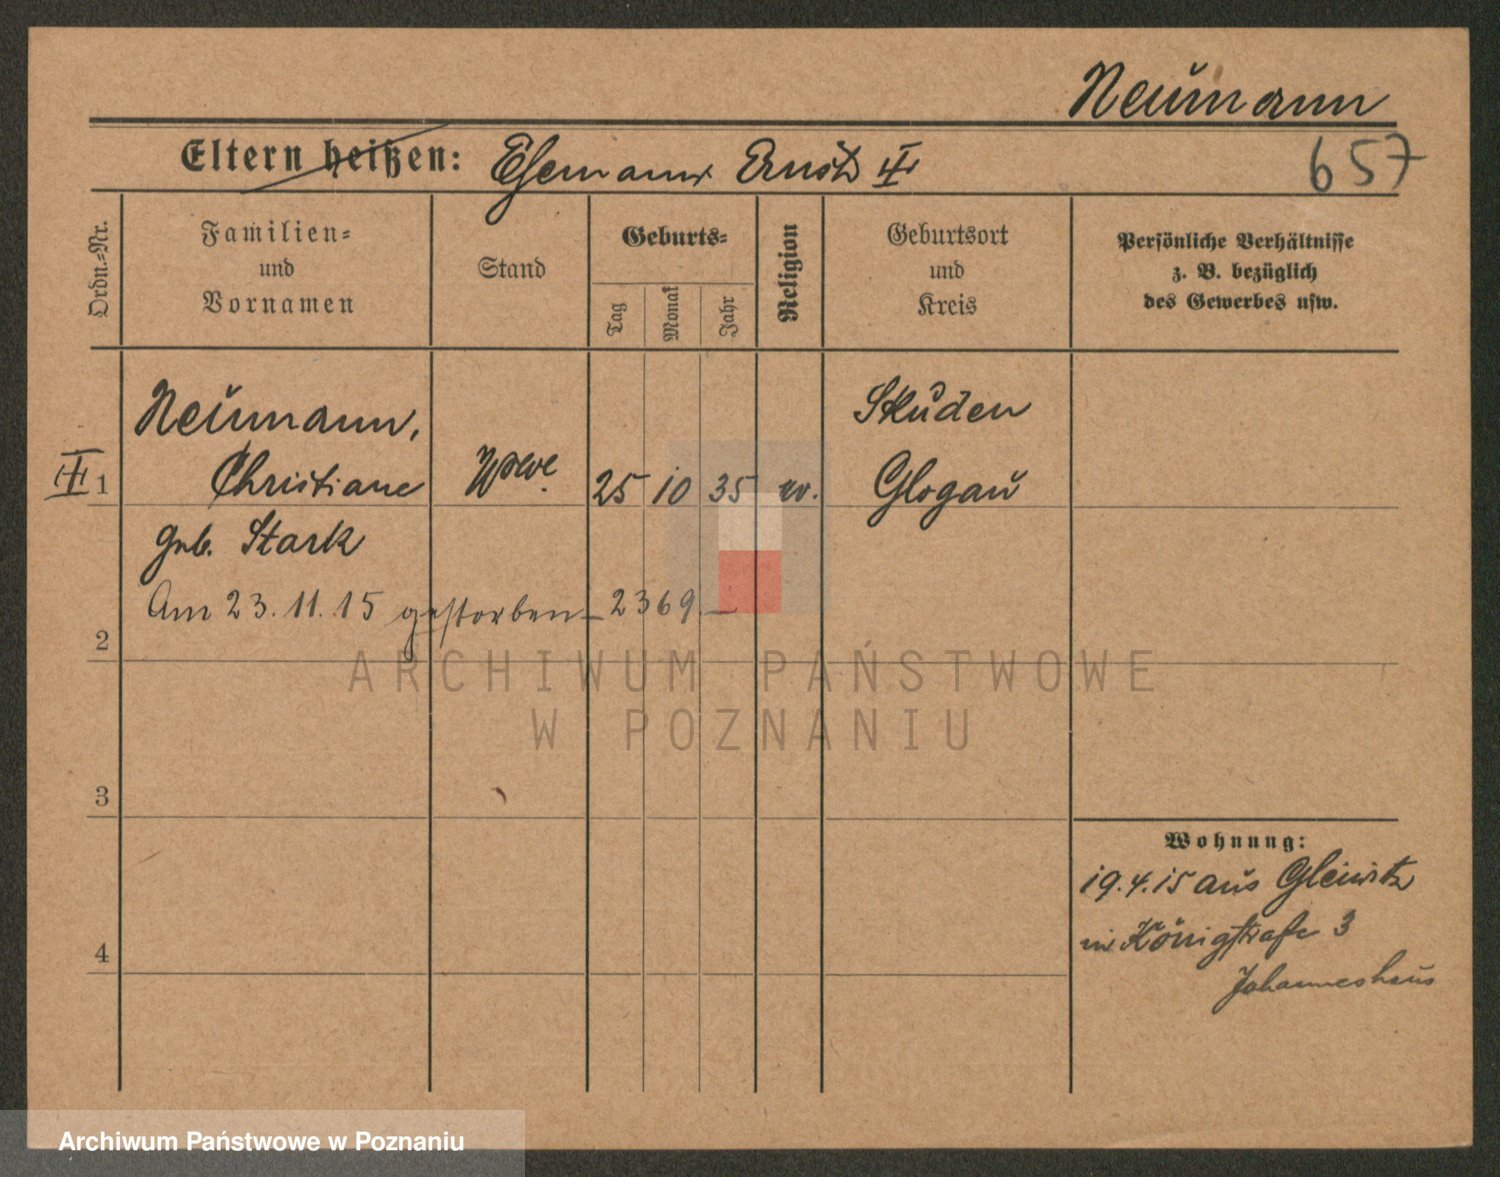 Neumann
657
Eltern heißen: Ehemann Ernst
Ordn.-Nr.
Familien-
und
Vornamen
Stand
Geburts-
Tag
Monat
Jahr
Religion
Geburtsort
und
Kreis
Persönliche Verhältnisse
z. B. bezüglich
des Gewerbes usw.
Neumann,
Skuden
1 Christiane Wwe. 25 10 35 ev. Glogau
geb. Stark
Am 23.11.15 gestorben – 2369. –
2
ARCHIWUM PAŃSTWOWE
W POZNANIU
3
Wohnung:
19.4.15 aus Gleiwitz
in Königstraße 3
4
Johanneshaus
Archiwum Państwowe w Poznaniu